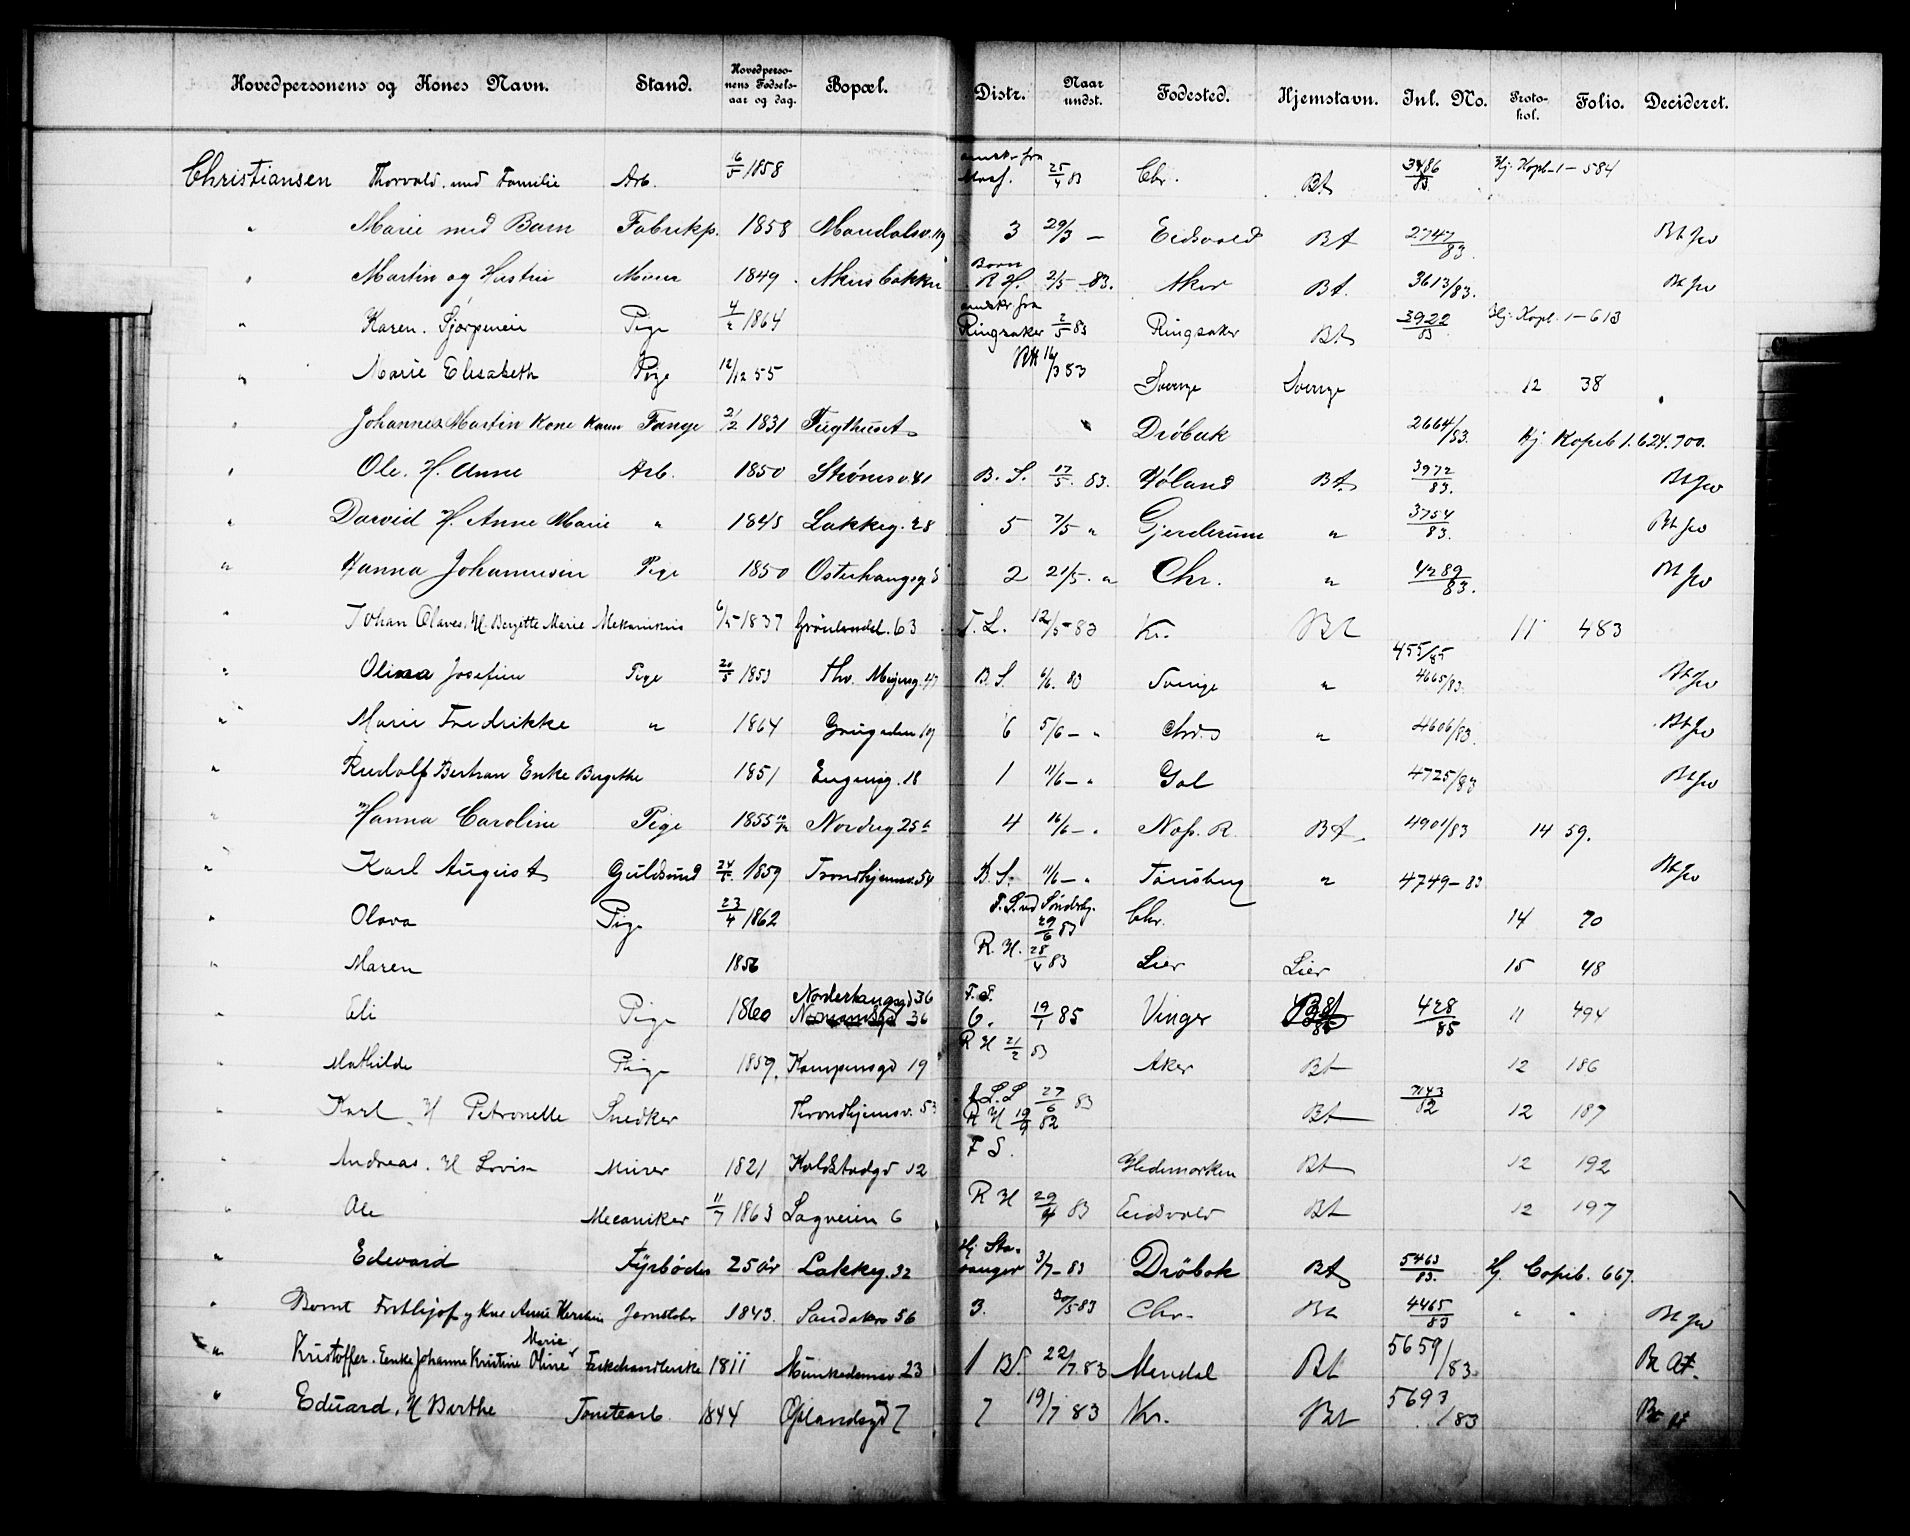 Hovedpersonens og Kones Navn. Stand. Hovedpersonens Fødselsaar og dag. Bopæl. Distr. Naar undst. Fødested. Hjemstavn. Inl. No. Protokol. Folio. Decideret.
Christiansen Thorvald med Familie Arb. 6/5 1858 ønsk. fra 25/4 83 Chr. Bt 3486/83 Hj. Kopb. 1 – 584
" Marie med Barn Fabrikp. 1858 Maridalsv. 3 29/3 – Eidsvold Bt 2747/83. Bt Jw
" Martin og Hustru Murer 1849 R H. 2/5 – 83. Aker Bt. 3613/83. Bt Jw
" Karen Pige 4/2 1864 ønsk. fra Ringsaker 2/5 83 Ringsaker Bt 3922/83 Hj. Kopb. 1 – 613
" Marie Elisabeth Pige 12/12 55 83 Sverige Sverige 12 38
" Johannes Martin Kone Karen Fange 2/2 1831 Tugthuset Drøbak 2664/83. Hj. Kopib 1. 624. 700.
" Ole. H. Anne Arb. 1850 Strømsv. 41 B. S. 17/5. 83. Høland Bt. 3972/83. Bt Jw
" Darvid H. Anne Marie " 1845 Lakkeg. 28 5 7/5 " Gjerderum " 3754/83. Bt Jw
" Hanna Johannesen Pige 1850 Osterhausg 2 21/5. " Chr. " 4289/83. Bt Jw
" Johan Olaves. H Bergette Marie Mekanikus 1837 Grønlandsl. 63 F. L. 12/5 83 Kr. Bt 11 483
" Olina Josefine Pige 20/5 1853 Thv. Meyersg. 47 B. S. 83 Sverige " 455/85 4665/83. Bt Jw
" Marie Fredrikke " 1864 6 5/6 – " Chr. " 4606/83. Bt Jw
" Rudolf Bertran Enke Bergithe 1851 Engensg. 18 1 11/6 – " Gol 4725/83 Bt Jw
" Hanna Caroline Pige 1855 Nordreg 25 b 4 16/6 – " Bt 4901/83 14 59.
" Karl August Guldsmed 1859 Trondhjemsv. 54 B. S. 11/6 – " Tønsberg " 4749 – 83 Bt Jw
" Olava Pige 23/4 1862 29/6 83 Chr. 14 70
" Maren 1856 R. H. 28/4 83 Lier Lier 15 48
" Eli Pige 1860 Norderhaugsgd 36 36 F. S. 6. 19/1 85 Vinger 428/85 11 494
" Mathilde Pige 1859. Kampensgd 19 R H 21/2 83 Aker Bt 12 186
" Karl H Petronelle Snedker Throndhjemsv. 53 27/6 83 R H 19/9 82 Bt 7143/82 12 187
" Andreas. H Lovise Murer 1821 Kolstadgd 12 F S. Hedemarken Bt 12 192
" Ole Mecaniker 11/7 1863 Lagveien 6 R H 83 Eidsvold Bt 12 197
" Edevard Fyrbøder 25 år Lakkeg. 32 Hj. Stavanger 3/7 – 83 Drøbak Bt 5463/83. Hj. Copib. 667.
" Bernt Frithjof og Kone Anne 1843. Sandakerv 56 3. 83 Chr. Bt 4465/83 " " Bt Jw
" Kristoffer. Enke Johanne Kristine Marie Oline 1811 Munkedamsv 23 1 Bf. 22/7. 83 Mandal Bt 5659/83. Bt At.
" Eduard. H Berthe 1844 Oplandsgd 7 7 19/7 83 Kr. Bt 5693/83 Bt